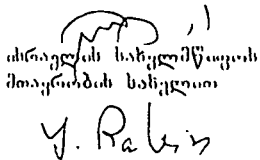 ისრაელის სახელმწიფოს
მთავრობის სახელით
Y. Rabin